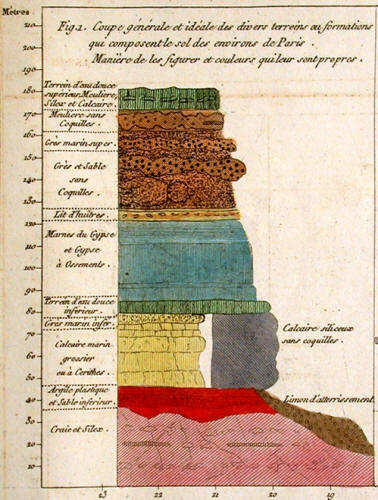 Mètres.
Fig.1. Coupe générale et idéale des divers terreins ou formations
qui composent le sol des environs de Paris.
Manière de les figurer et couleurs qui leur sont propres.
210
200
190
180
170
160
150
140
130
120
110
100
90
80
70
60
50
40
30
20
10
Terrein d'eau douce
supérieur. Meulière,
Silex et Calcaire.
Meulière sans
Coquilles.
Gres marin super.
Grès et Sable
sans
Coquilles.
Lit d'huitres.
Marnes du Gypse
et Gypse
à Ossements.
Terrein d'eau douce
inférieur.
Gres marin infér.
Calcaire marin
grossier
ou à Cerithes.
Argile plastique
et Sable inférieur.
Craie et Silex.
Calcaire siliceux
sans coquilles.
Limon d'atterrissement.
23
22
21
20
19